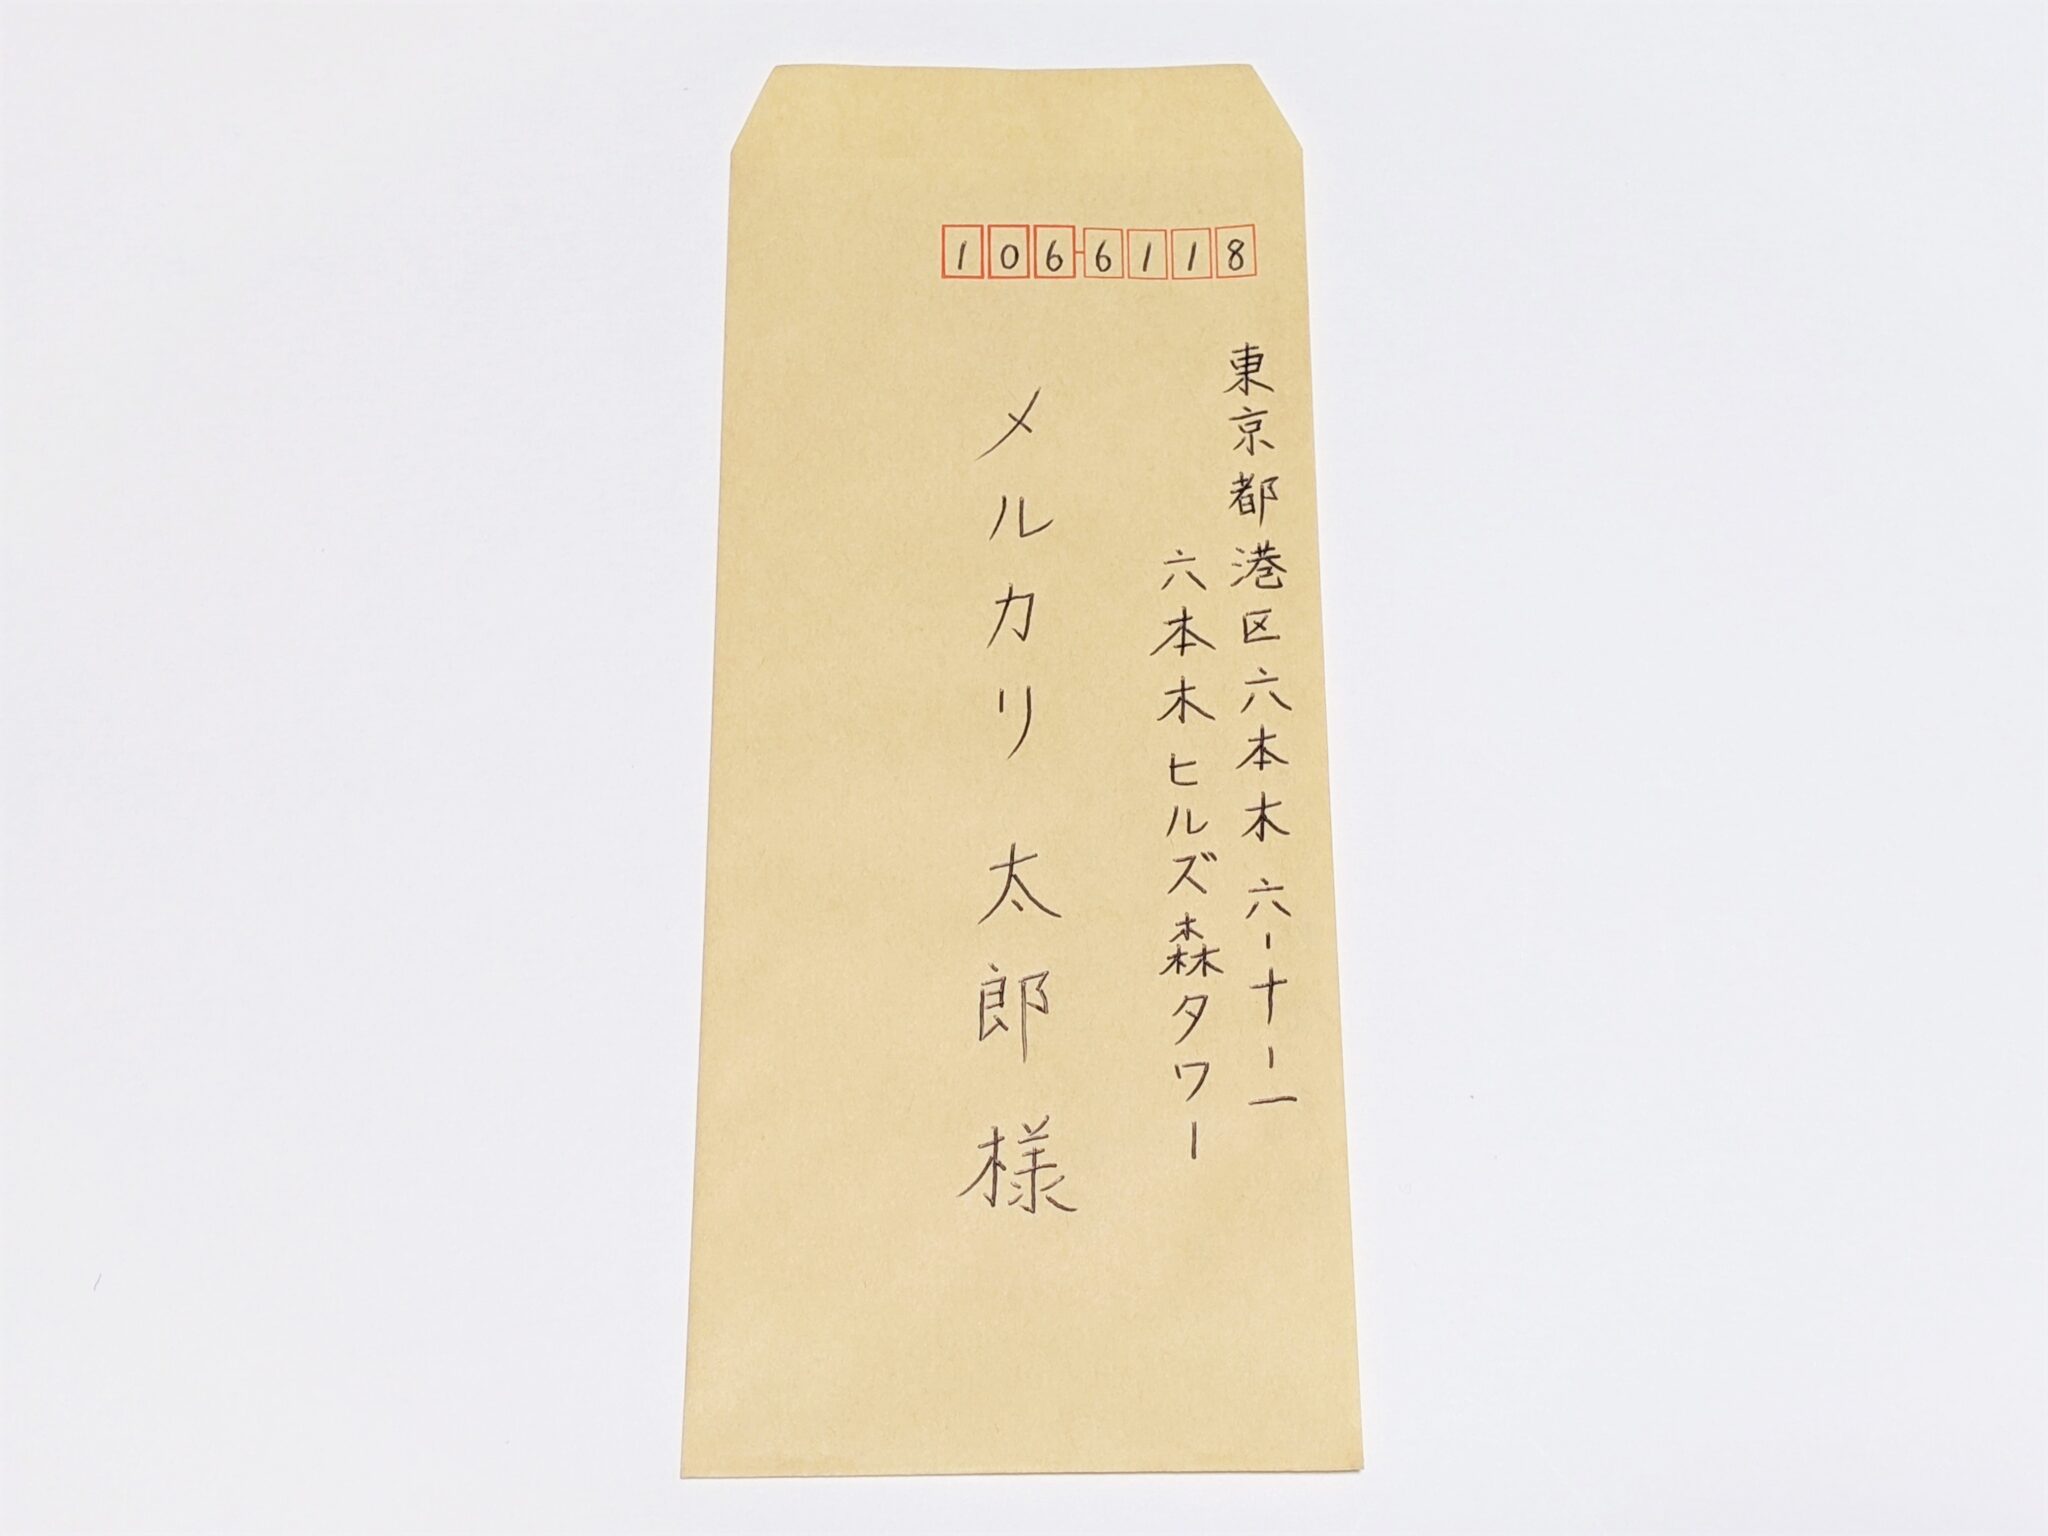 106-6118
東京都港区六本木六ー十ー一
六本木ヒルズ森タワー
メルカリ 太郎 様